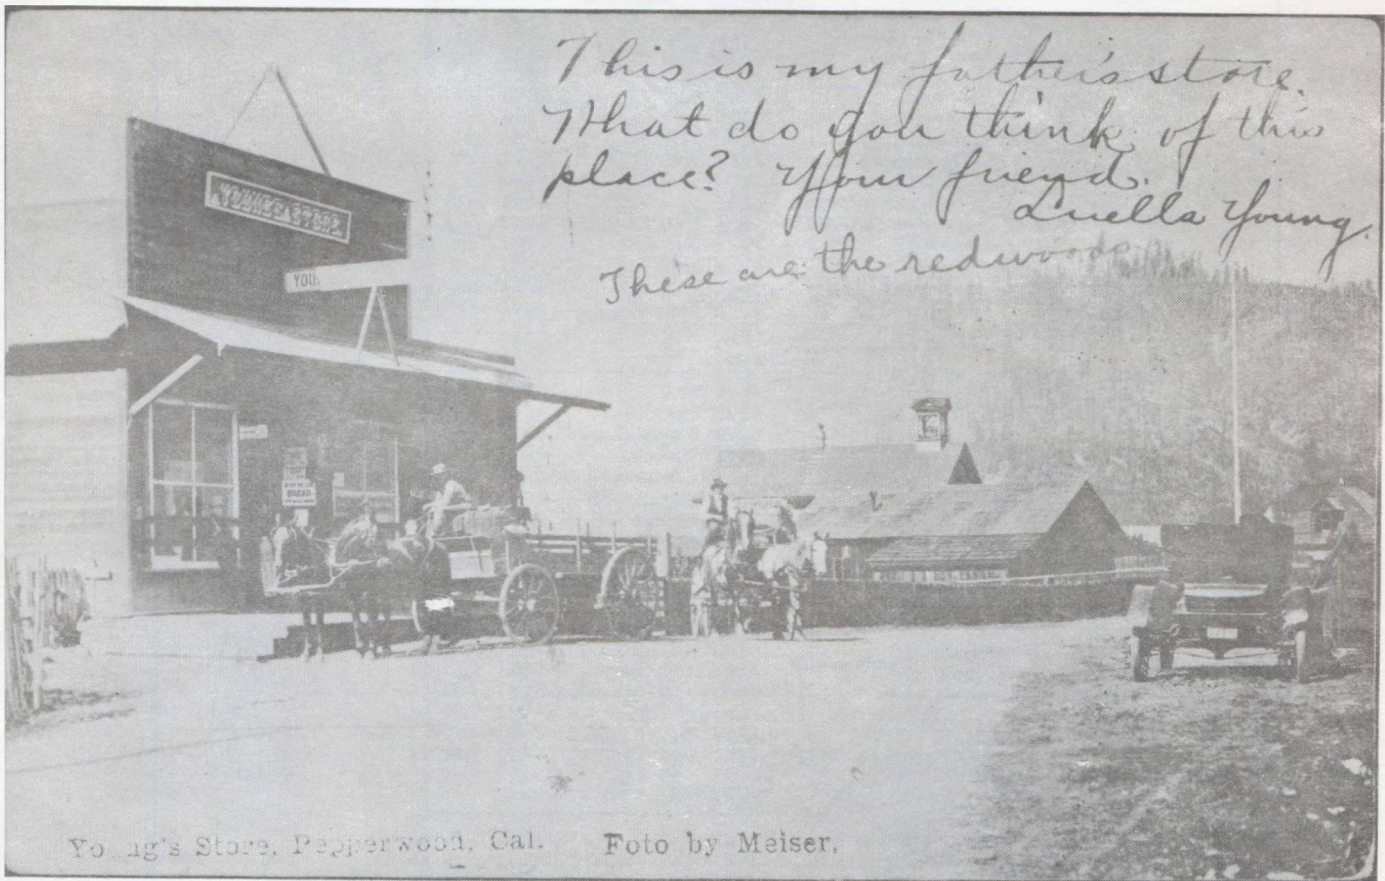 This is my father's store.
What do you think of this
place? Your friend.
Luella Young.
These are the redwoods
YOUNGS STORE.
YOU
BREAD
Young's Store, Pepperwood, Cal. Foto by Meiser.